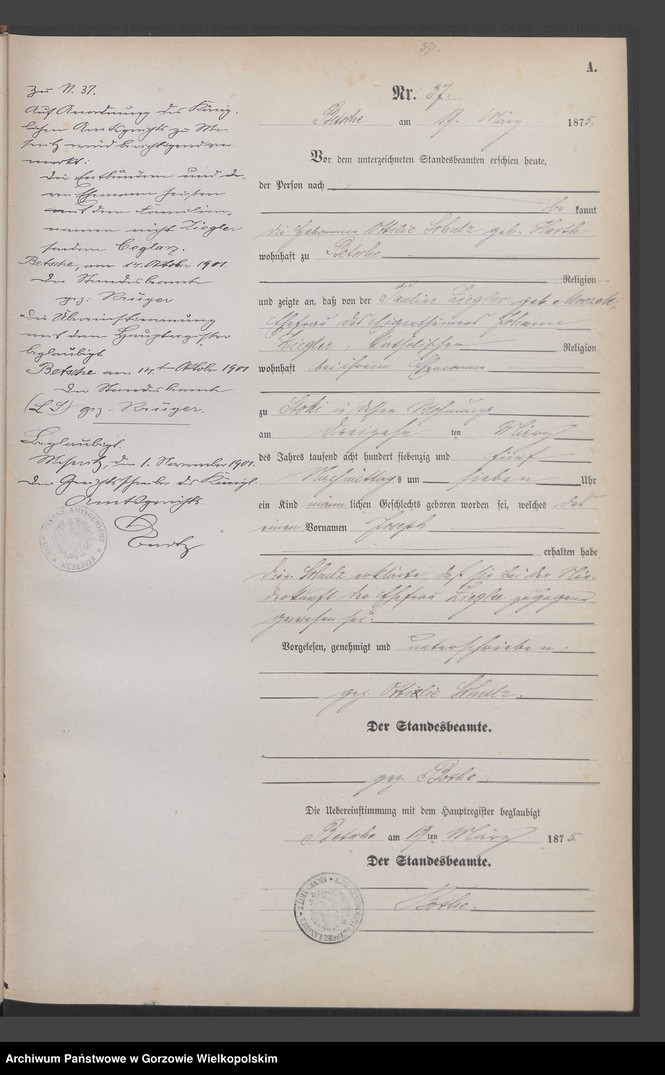 37.
A.
Nr. 37.
Betsche am 17. März 1875.
Vor dem unterzeichneten Standesbeamten erschien heute,
der Person nach
be kannt
die Hebamme Ottilie Schulz geb.
wohnhaft zu Betsche
Religion
und zeigte an, daß von der Pauline Ziegler geb.
Ehefrau des Eigenthümers Johann
Ziegler, katholischer Religion
wohnhaft bei ihrem Ehemanne
zu Stoki in dessen Wohnung
am dreizehn ten März
des Jahres tausend acht hundert siebenzig und fünf
Nachmittags um sieben Uhr
ein Kind männlichen Geschlechts geboren worden sei, welches den
einen Vornamen Joseph
erhalten habe
Die p. Schulz erklärte, daß sie bei der Nie-
derkunft der Ehefrau Ziegler zugegen
gewesen sei.
Vorgelesen, genehmigt und unterschrieben.
gez. Ottilie Schulz.
Der Standesbeamte.
gez. Bothe.
Die Uebereinstimmung mit dem Hauptregister beglaubigt
Betsche am 17ten März 1875.
Der Standesbeamte.
Bothe.
Zu N. 37.
Auf Anordnung des König-
lichen Amtsgerichts zu Me-
seritz wird berichtigend ver-
merkt:
Die Entbundene und de-
ren Ehemann heißen
mit dem Familien-
namen nicht Ziegler
sondern Ceglarz.
Betsche, am 14. Oktober 1901.
Der Standesbeamte
gez: Krüger
Die Übereinstimmung
mit dem Hauptregister
beglaubigt
Betsche am 14ten Oktober 1901
Der Standesbeamte
(L.S.) gez. Krüger.
Beglaubigt.
Meseritz, den 1. November 1901.
Der Gerichtsschreiber des Königl.
Amtsgerichts.
AMTSGERICHT
MESERITZ
Archiwum Państwowe w Gorzowie Wielkopolskim